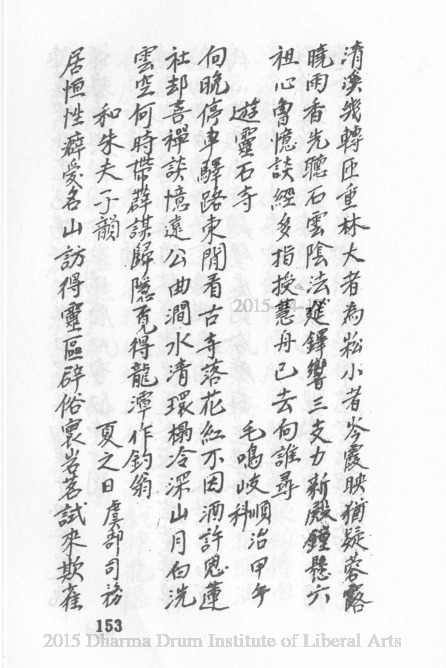 清溪幾轉匝重林大者為崧小者岑霞映猶疑蓉露
曉雨香先聽石雲陰法筵鐸響三支力新殿鐘懸六
祖心曾憶談經多指授慧舟已去向誰尋
遊靈石寺 毛鳴岐順治甲午科
向晚停車驛路東閒看古寺落花紅不因酒許思蓮
社却喜禪談憶遠公曲澗水清環榻冷深山月白洗
雲空何時帶辟謀歸隱覓得龍潭作釣翁
和朱夫子韻 夏之日虞部司務
居恒性癖愛名山訪得靈區辟俗寰岩茗試來欺雀
153
2015 Dharma Drum Institute of Liberal Arts